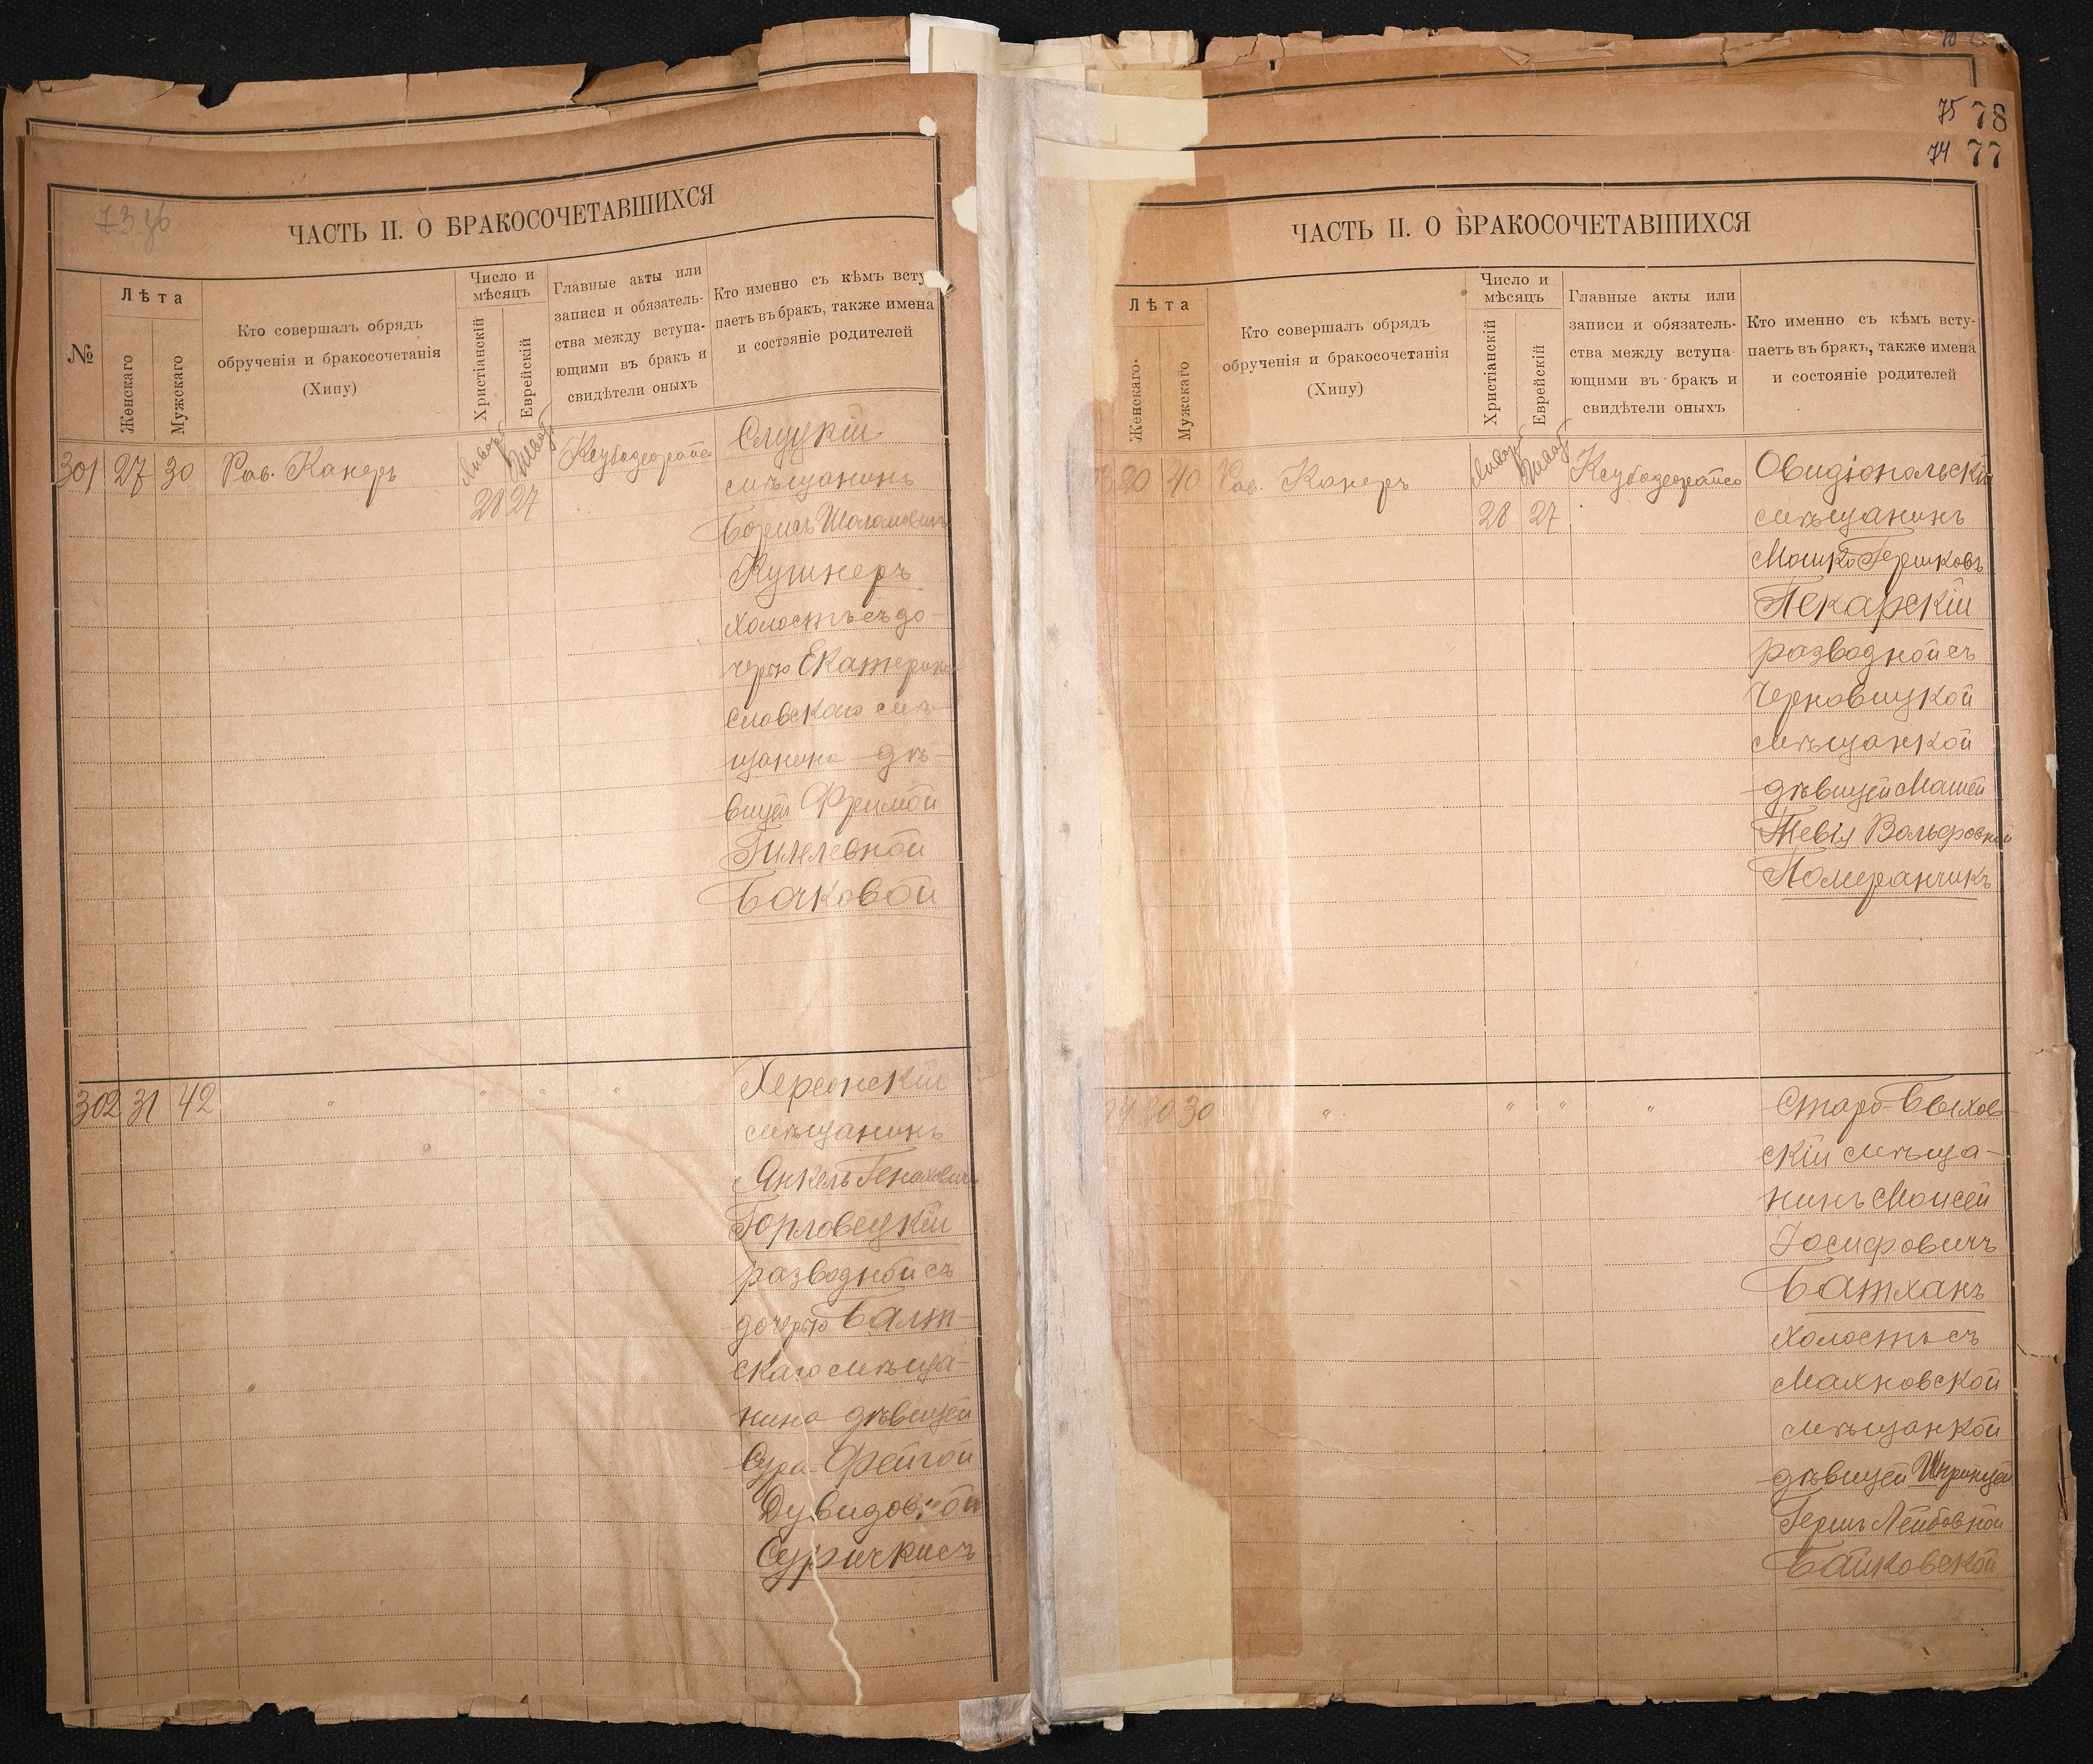 75 78
74 77
73 зб
ЧАСТЬ II. О БРАКОСОЧЕТАВШИХСЯ
№
Лѣта
Женскаго
Мужскаго
Кто совершалъ обрядъ
обрученія и бракосочетанія
(Хипу)
Число и
мѣсяцъ
Христіанскій
Еврейскій
Главные акты или
записи и обязатель-
ства между вступа-
ющими въ бракъ и
свидѣтели оныхъ
Кто именно съ кѣмъ всту
паетъ въ бракъ, также имена
и состояніе родителей
301 27 30 Рав. Канеръ
28 27
Слуцкій
мѣщанинъ
Борисъ
Кушнеръ
холостъ съ до-
черью Екатерино
славскаго мѣ-
щанина дѣ-
вицей Фримой
Гилелевной
Бочковой
302 31 42 " " " "
Херсонскій
мѣщанинъ
Янкель Геноховичъ
Горловецкій
разводной съ
дочерью Балт-
скаго мѣща-
нина дѣвицей
Сура-Фейгой
Дувидовной
Суричкисъ
ЧАСТЬ II. О БРАКОСОЧЕТАВШИХСЯ
Лѣта
Женскаго
Мужскаго
Кто совершалъ обрядъ
обрученія и бракосочетанія
(Хипу)
Число и
мѣсяцъ
Христіанскій
Еврейскій
Главные акты или
записи и обязатель-
ства между вступа
ющими въ бракъ и
свидѣтели оныхъ
Кто именно съ кѣмъ всту-
паетъ въ бракъ, также имена
и состояніе родителей
20 40 Рав. Канеръ
28 27
Овидіопольскій
мѣщанинъ
Мошко Гершковъ
Пекарскій
разводной съ
Черновицкой
мѣщанкой
дѣвицей Маней
Тевія Вольфовной
Померанчикъ
30 30 " " " "
Старо-Быхов-
скій мѣща-
нинъ Моисей
Іосифовичъ
Батханъ
холостъ съ
Махновской
мѣщанкой
дѣвицей Шпринцей
Гершъ Лейбовной
Байковской